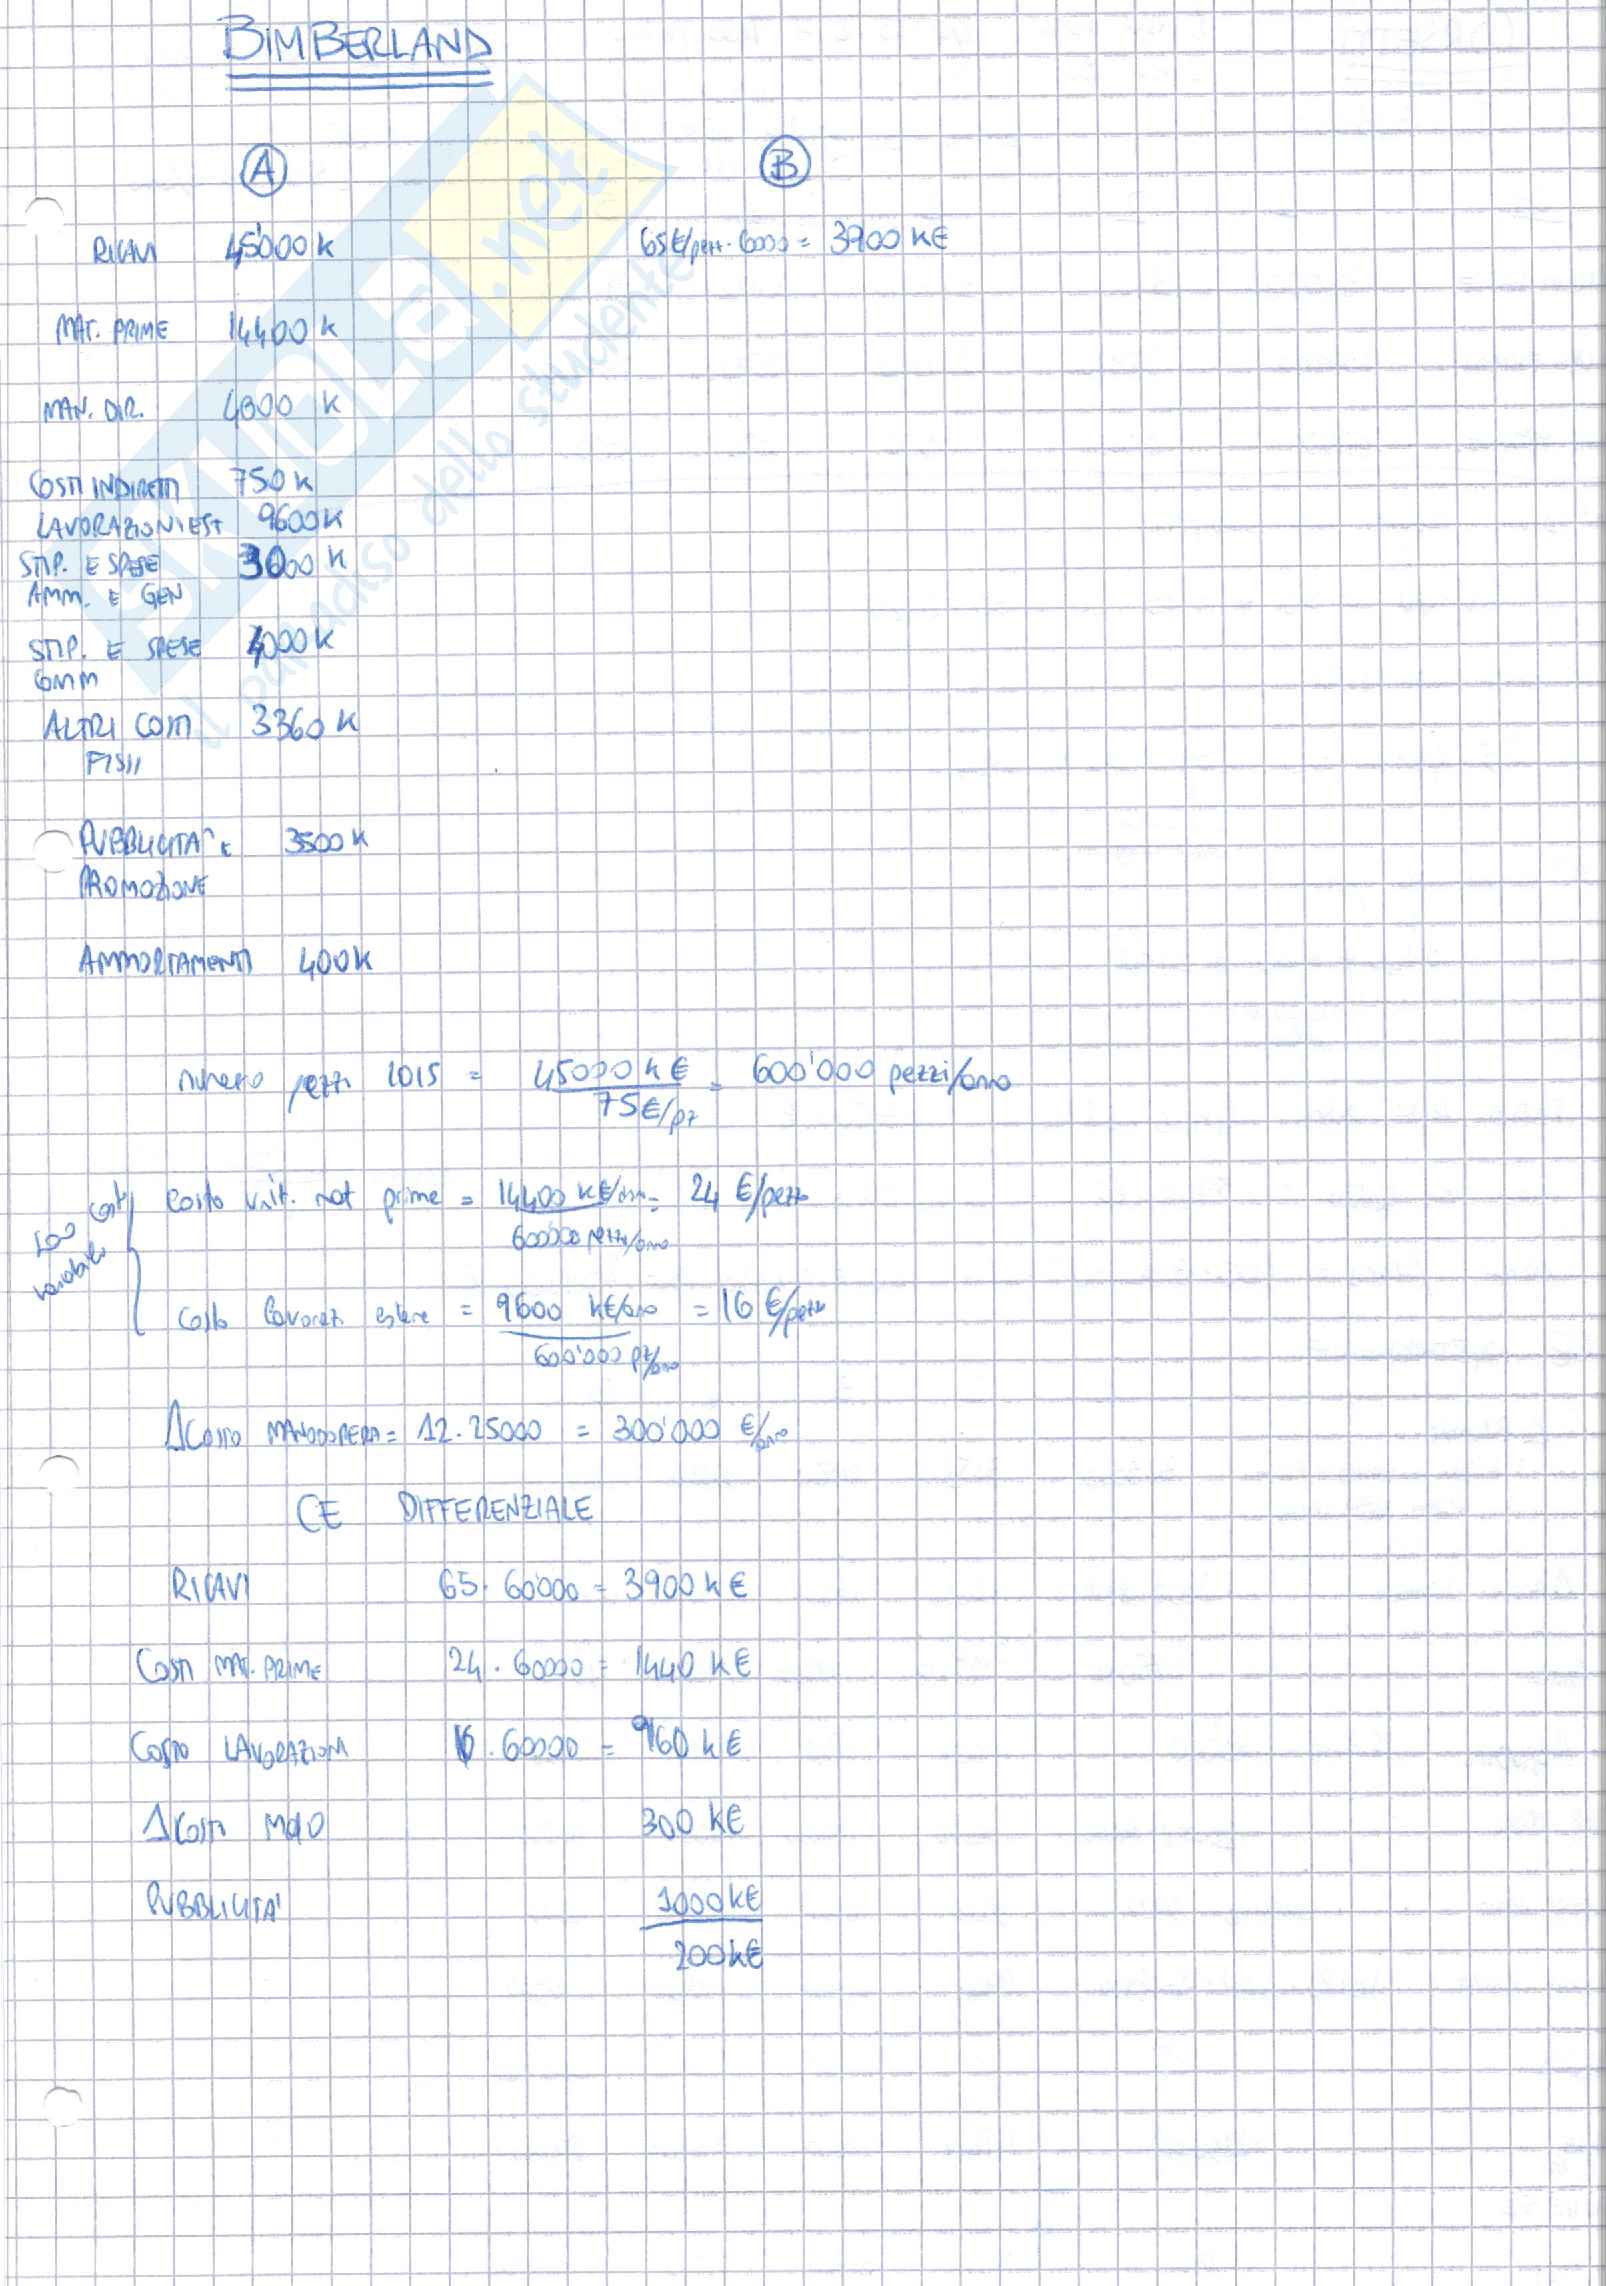 BIMBERLAND
A B
RICAVI 45'000 K 65€/pezz. 6000 = 3900 K€
MAT. PRIME 14400 K
MAN. DIR. 4800 K
COSTI INDIRETTI 750 K
LAVORAZIONI EST 9600K
STIP. E SPESE 3000 K
AMM. E GEN
STIP. E SPESE 4000K
COMM
ALTRI COSTI 3360 K
FISSI
PUBBLICITA' E 3500 K
PROMOZIONE
AMMORTAMENTI 400K
numero pezzi 2015 = 45000 K€ / 75€/pz = 600'000 pezzi/anno
costo unit. mat prime = 14400 K€/anno / 600'000 pezzi/anno = 24 €/pezzo
son costi variabili
costo lavoraz. esterne = 9600 K€/anno / 600'000 pz/anno = 16 €/pezzo
ΔCOSTO MANODOPERA = 12.25000 = 300'000 €/anno
CE DIFFERENZIALE
RICAVI 65. 60'000 = 3900 K€
COSTI MAT. PRIME 24. 60000 = 1440 K€
COSTO LAVORAZIONI 16. 60000 = 960 K€
ΔCOSTI MdO 300 K€
PUBBLICITA' 1000K€
200K€
SKUOLA.net
il paradiso dello studente